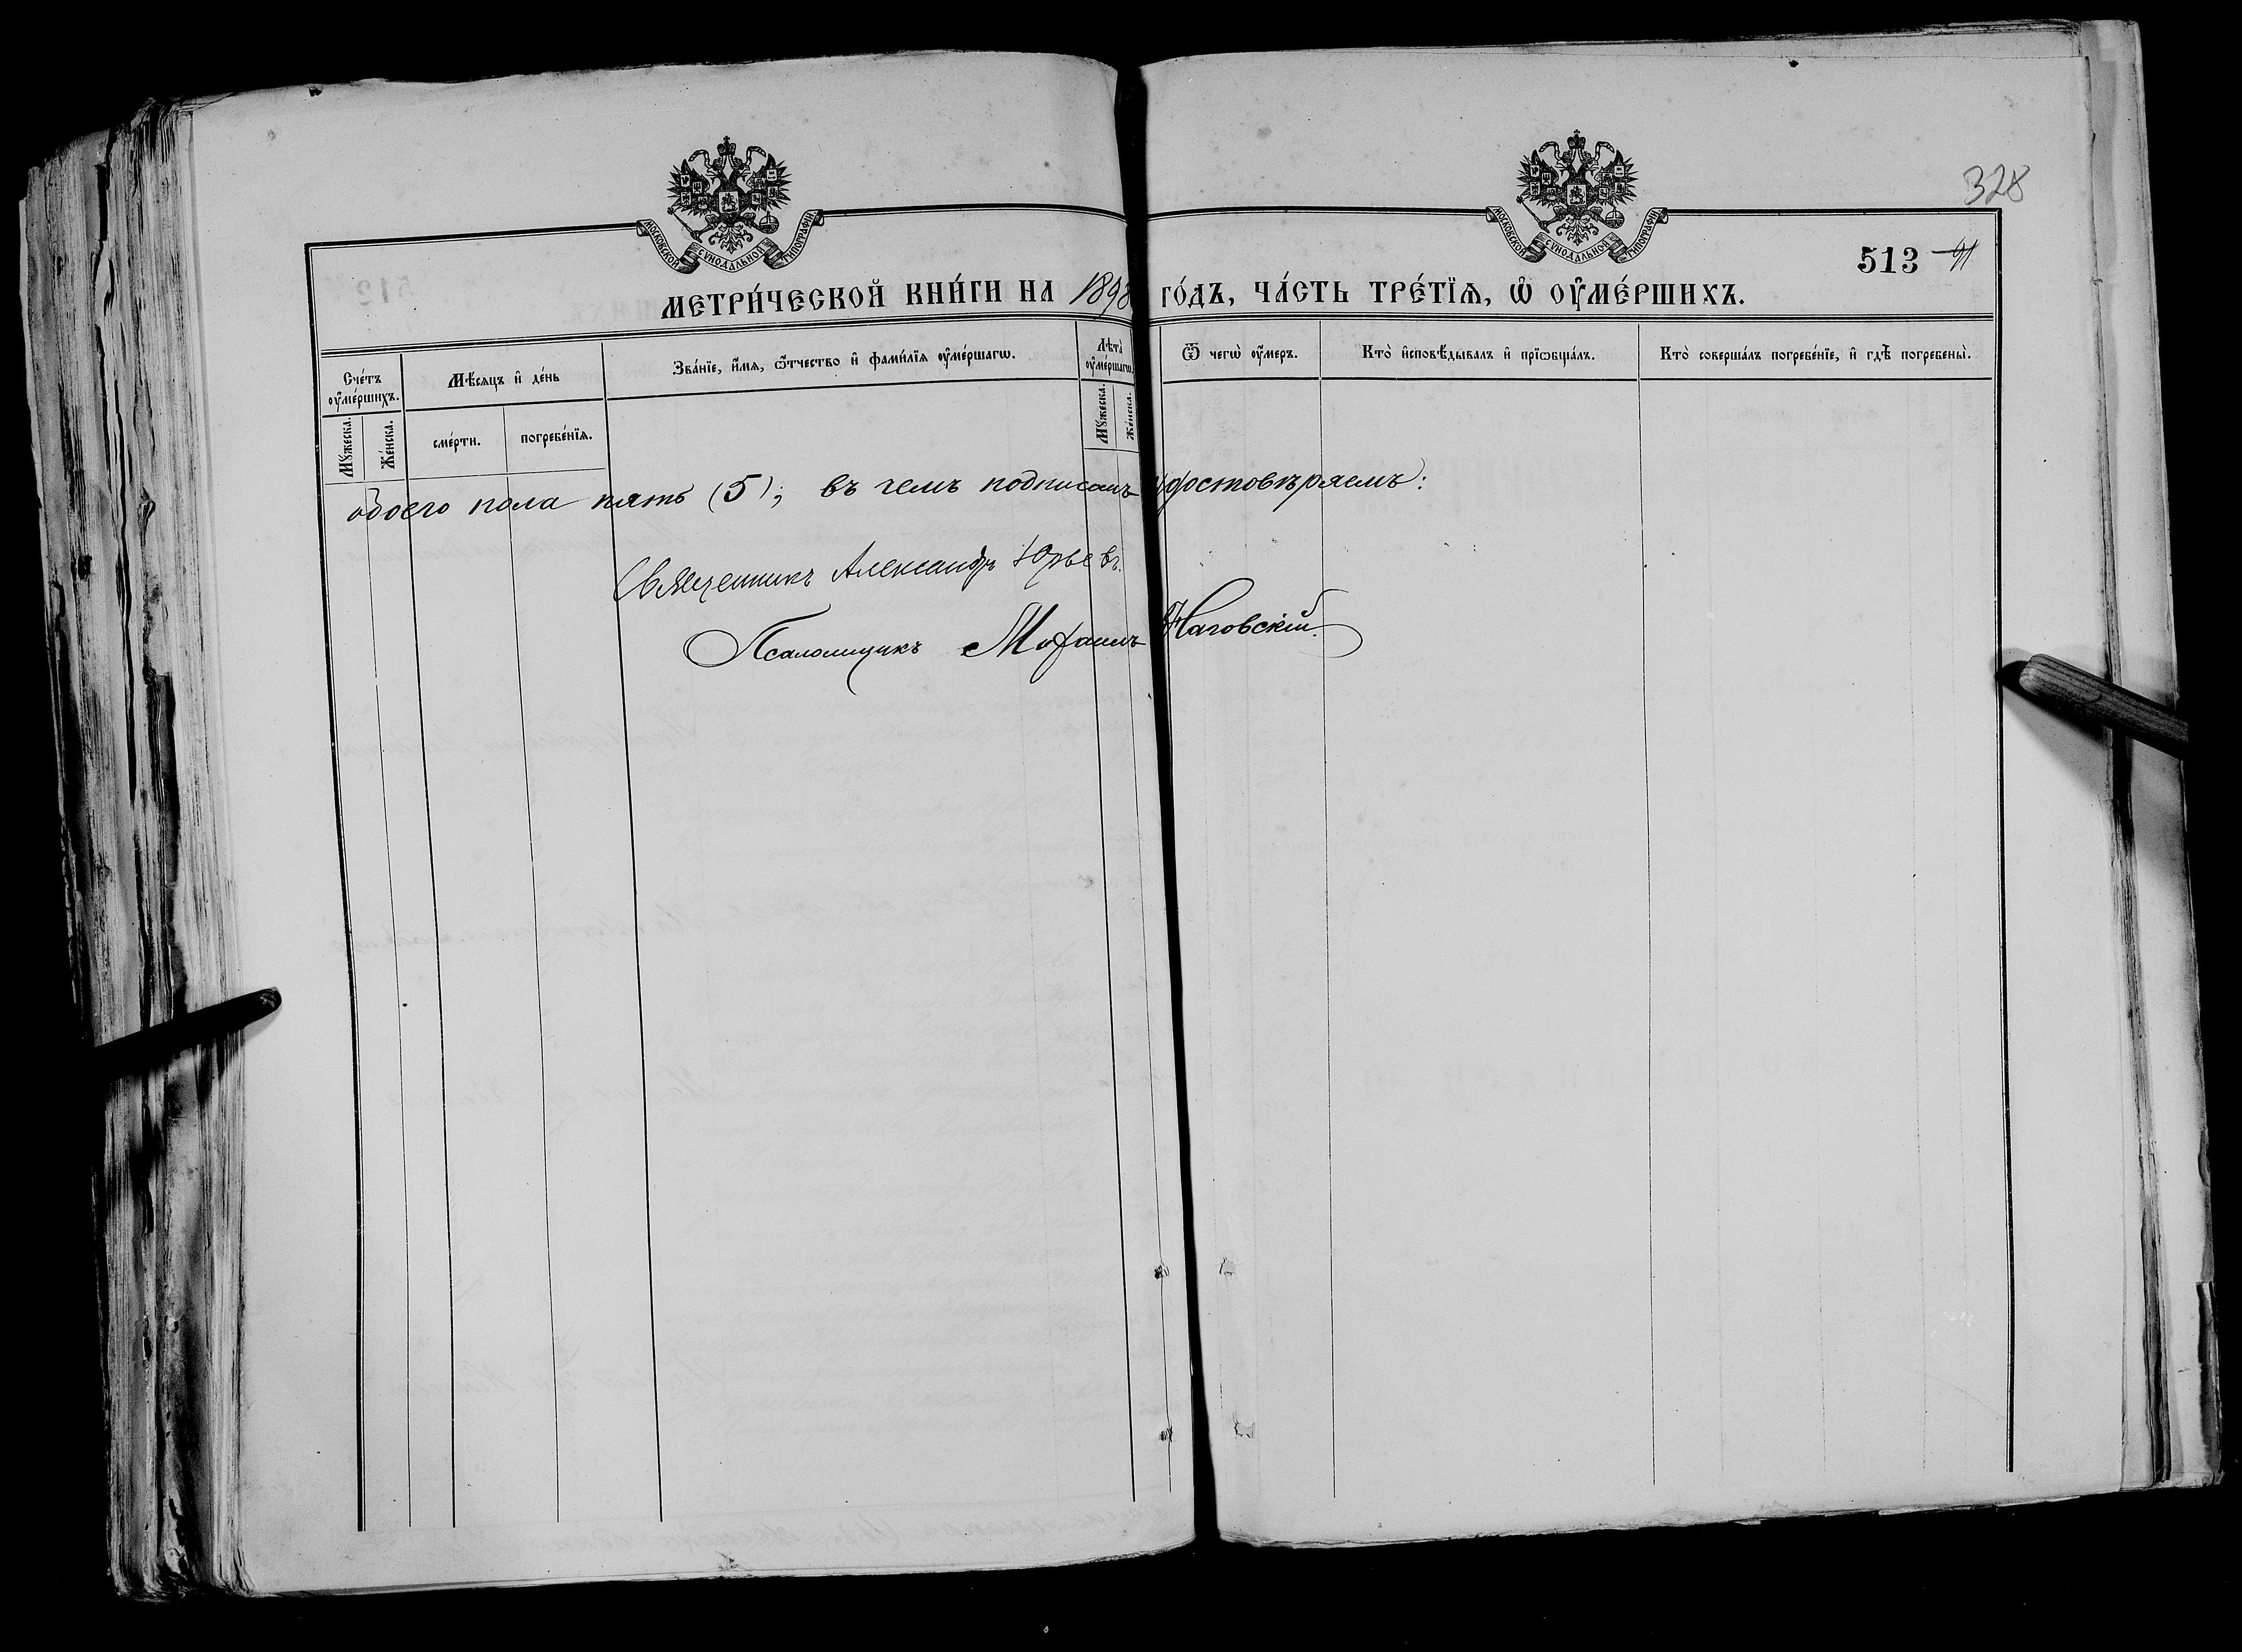 328
513
91
МОСКОВСКОЙ СѴНОДАЛЬНОЙ ТИПОГРАФІИ
МОСКОВСКОЙ СѴНОДАЛЬНОЙ ТИПОГРАФІИ
МЕТРИ́ЧЕСКОЙ КНИ́ГИ НА 1898 ГО́ДЪ, ЧА́СТЬ ТРЕ́ТЇѦ, Ѡ҆ ОУ҆МЕ́РШИХЪ.
Сче́тъ оу҆ме́ршихъ.
Мѣ́сѧцъ и҆ де́нь
Зва́нїе, и҆́мѧ, ѻ҆́тчество и҆ фами́лїѧ оу҆ме́ршагѡ.
Лѣта̀ оу҆ме́ршагѡ.
Ѿ чегѡ̀ оу҆́меръ.
Кто̀ и҆сповѣ́дывалъ и҆ прїѡбща́лъ.
Кто̀ соверша́лъ погребе́нїе, и҆ гдѣ̀ погребены̀.
Мꙋ́жеска.
Же́нска.
сме́рти.
погребе́нїѧ.
Мꙋ́жеска.
Же́нска.
обоего пола пять (5); въ чемъ подписомъ удостовѣряемъ:
Священникъ Александръ Юрьевъ.
Псаломщикъ Михаилъ Наговскій.